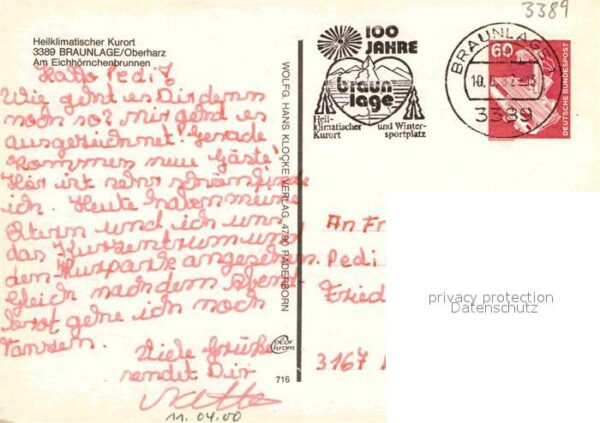 3389
Heilklimatischer Kurort
3389 BRAUNLAGE/Oberharz
Am Eichhörnchenbrunnen
Hallo Pedi!
Wie geht es Dir denn
noch so? Mir geht es
ausgezeichnet! Gerade
kommen neue Gäste!
Hier ist sehr schön finde
ich. Heute haben meine
Eltern und ich uns
das Kurzentrum und
den Kurpark angesehen.
Gleich nach dem Abend-
brot gehe ich noch
tanzen.
Viele Grüße
sendet Dir
11.04.00
WOLFG. HANS KLOCKE VERLAG, 4790 PADERBORN
Color
chrom
716
100
JAHRE
braun
lage
Heil-
klimatischer
Kurort
und Winter-
sportplatz
BRAUNLAGE
3389
60
DEUTSCHE BUNDESPOST
An Fr
Pedi
Fried
3167
privacy protection
Datenschutz